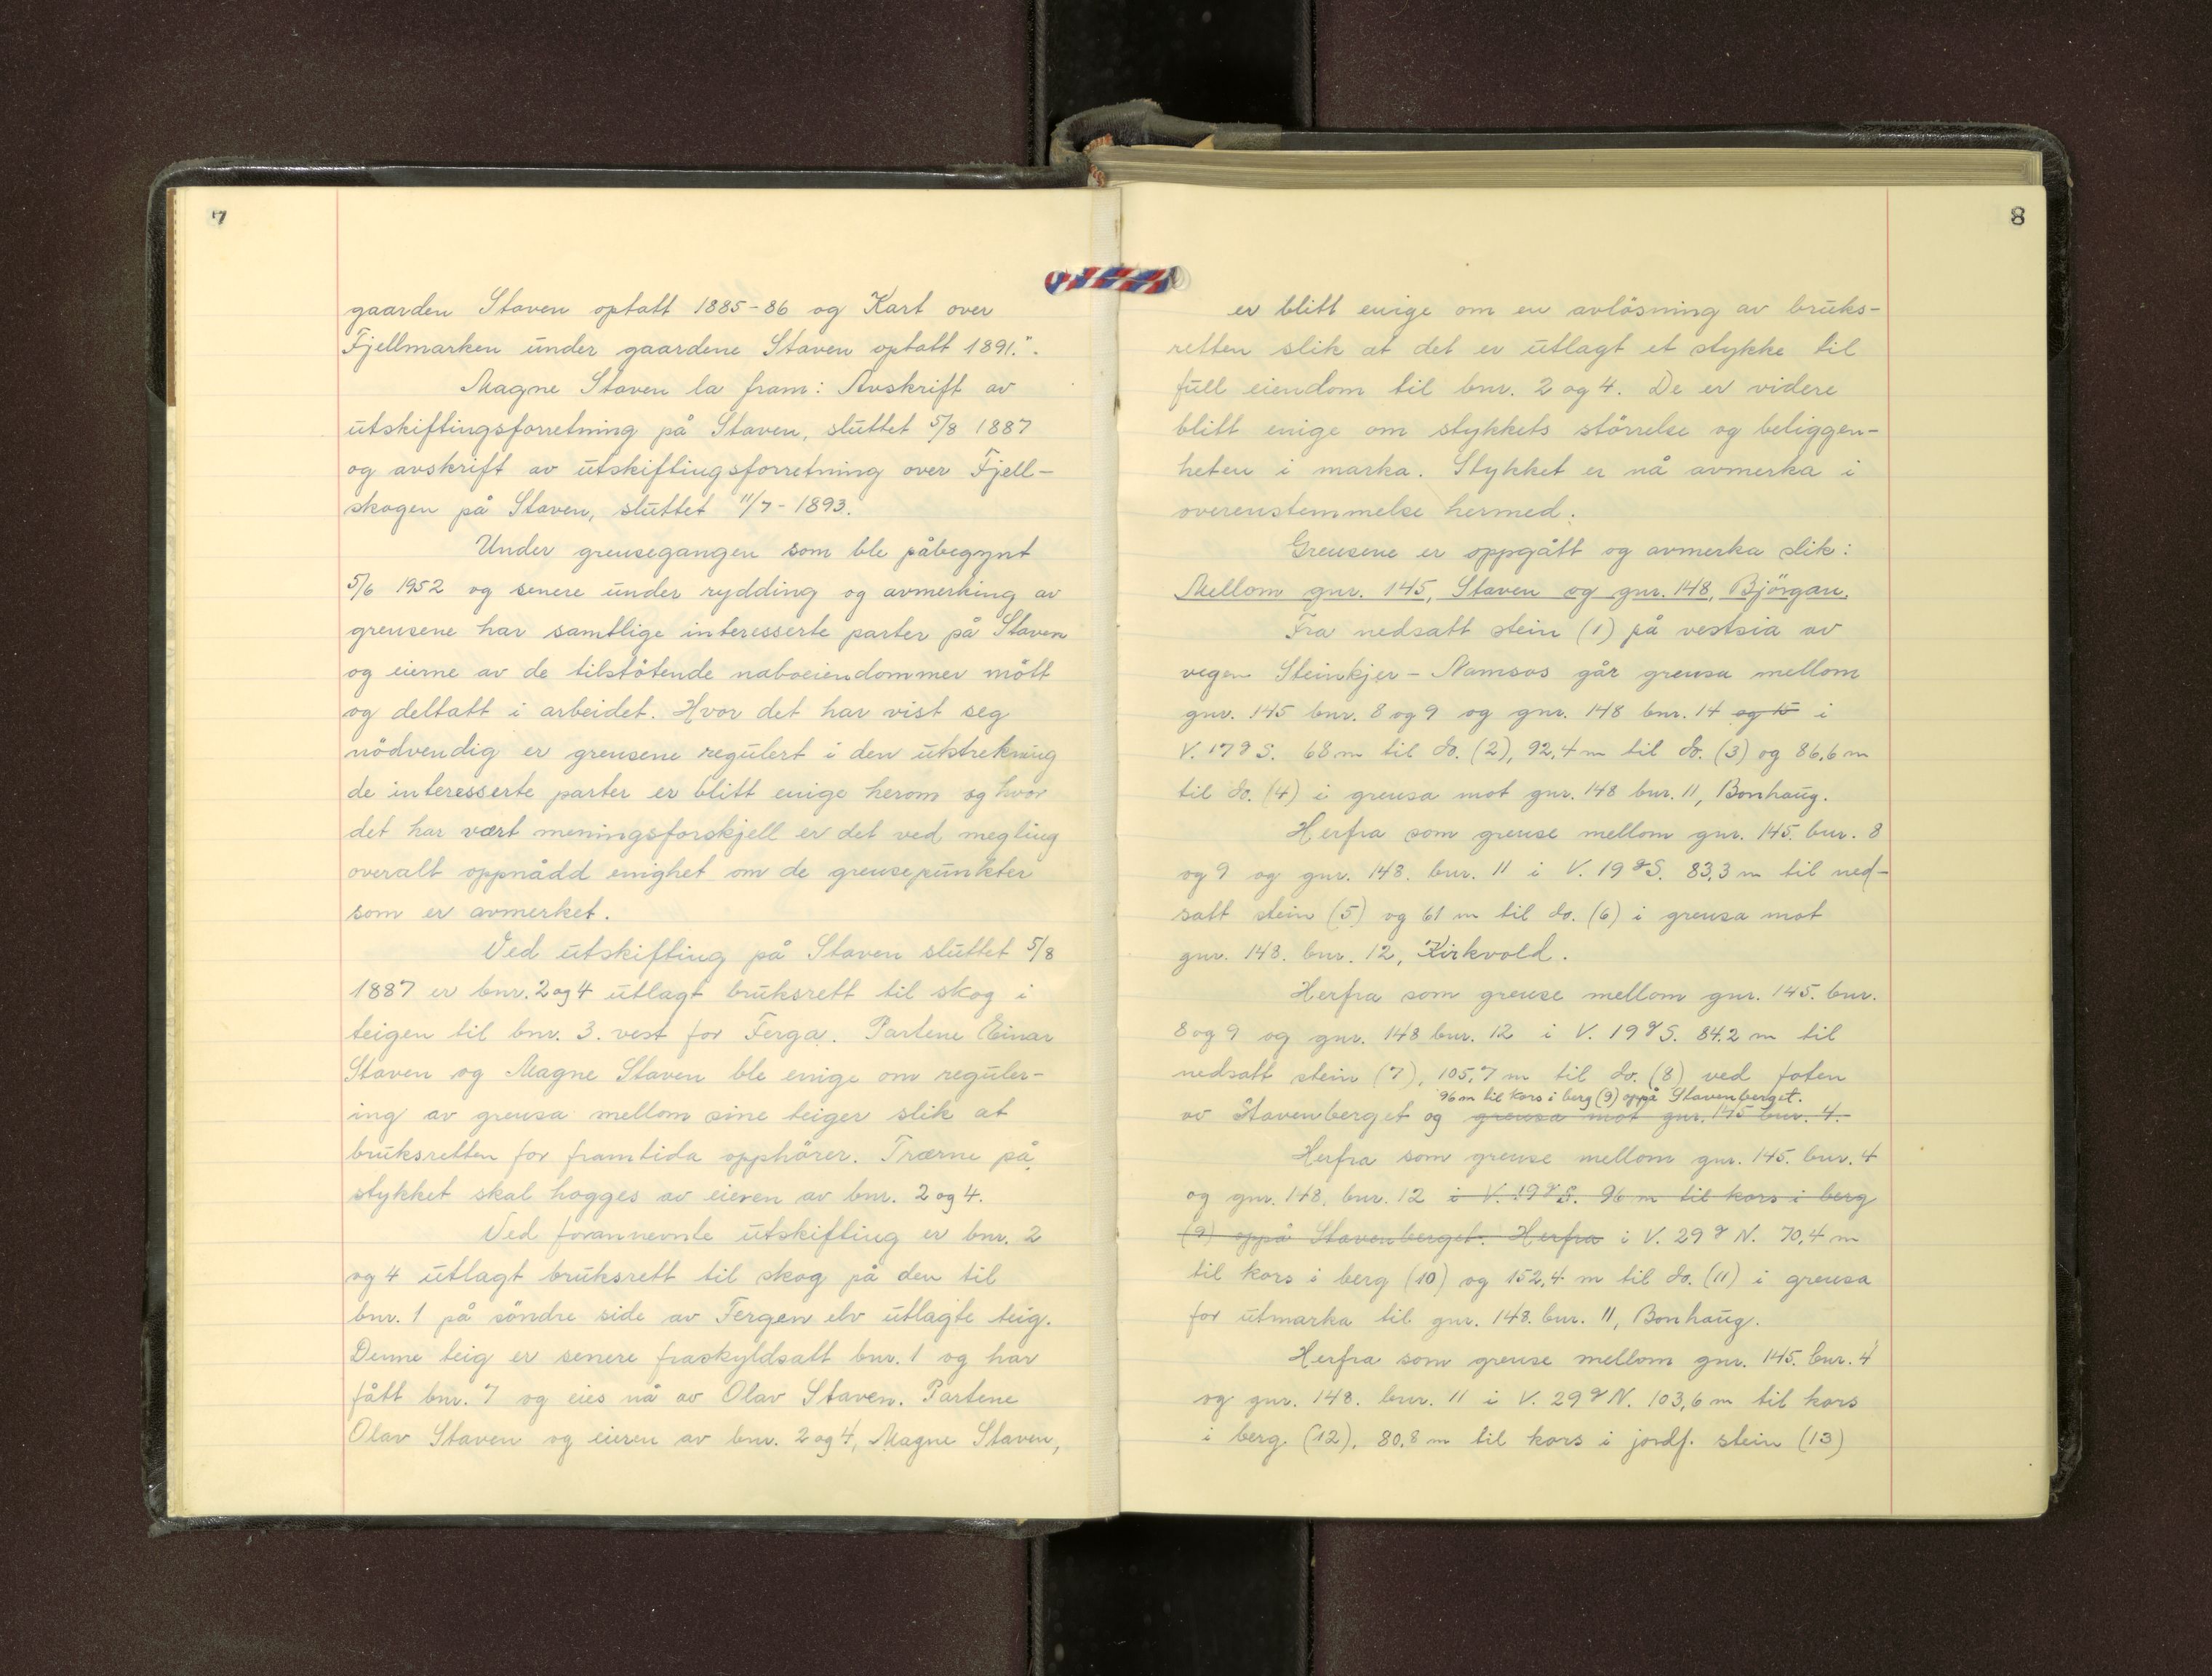 7
gaarden Staven optatt 1885-86 og Kart over
Fjellmarken under gaardene Staven optatt 1891.".
Magne Staven la fram: Avskrift av
utskiftingsforretning på Staven, sluttet 5/8 1887
og avskrift av utskiftingsforretning over Fjell-
skogen på Staven, sluttet 11/7 - 1893.
Under grensegangen som ble påbegynt
5/6 1952 og senere under rydding og avmerking av
grensene har samtlige interesserte parter på Staven
og eierne av de tilstötende naboeiendommer mött
og deltatt i arbeidet. Hvor det har vist seg
nödvendig er grensene regulert i den utstrekning
de interesserte parter er blitt enige herom og hvor
det har vært meningsforskjell er det ved megling
overalt oppnådd enighet om de grensepunkter
som er avmerket.
Ved utskifting på Staven sluttet 5/8
1887 er bnr. 2 og 4 utlagt bruksrett til skog i
teigen til bnr. 3. vest for Ferga. Partene Einar
Staven og Magne Staven ble enige om reguler-
ing av grensa mellom sine teiger slik at
bruksretten for framtida opphörer. Trærne på
stykket skal hogges av eieren av bnr. 2 og 4.
Ved forannevnte utskifting er bnr. 2
og 4 utlagt bruksrett til skog på den til
bnr. 1 på söndre side av Fergen elv utlagte teig.
Denne teig er senere fraskyldsatt bnr. 1 og har
fått bnr. 7 og eies nå av Olav Staven. Partene
Olav Staven og eieren av bnr. 2 og 4, Magne Staven,
8
er blitt enige om en avlösning av bruks-
retten slik at det er utlagt et stykke til
full eiendom til bnr. 2 og 4. De er videre
blitt enige om stykkets störrelse og beliggen-
heten i marka. Stykket er nå avmerka i
overenstemmelse hermed.
Grensene er oppgått og avmerka slik:
Mellom gnr. 145, Staven og gnr. 148, Björgan.
Fra nedsatt stein (1) på vestsia av
vegen Steinkjer - Namsos går grensa mellom
gnr. 145 bnr. 8 og 9 og gnr. 148 bnr. 14 og 15 i
V. 17 g S. 68 m til do. (2), 92,4 m til do. (3) og 86,6 m
til do. (4) i grensa mot gnr. 148 bnr. 11, Bonhaug.
Herfra som grense mellom gnr. 145. bnr. 8
og 9 og gnr. 148. bnr. 11 i V. 19 g S. 83,3 m til ned-
satt stein (5) og 61 m til do. (6) i grensa mot
gnr. 148. bnr. 12, Kirkvold.
Herfra som grense mellom gnr. 145. bnr.
8 og 9 og gnr. 148 bnr. 12 i V. 19 g S. 84.2 m til
nedsatt stein (7), 105,7 m til do. (8) ved foten
96 m til kors i berg (9) oppå Stavenberget.
av Stavenberget og grensa mot gnr. 145 bnr. 4.
Herfra som grense mellom gnr. 145. bnr. 4
og gnr. 148. bnr. 12 i V. 19 g S. 96 m til kors i berg
(9) oppå Stavenberget. Herfra i V. 29 g N. 70,4 m
til kors i berg (10) og 152,4 m til do. (11) i grensa
for utmarka til gnr. 148. bnr. 11, Bonhaug.
Herfra som grense mellom gnr. 145. bnr. 4
og gnr. 148. bnr. 11 i V. 29 g N. 103,6 m til kors
i berg (12), 80,8 m til kors i jordf. stein (13)